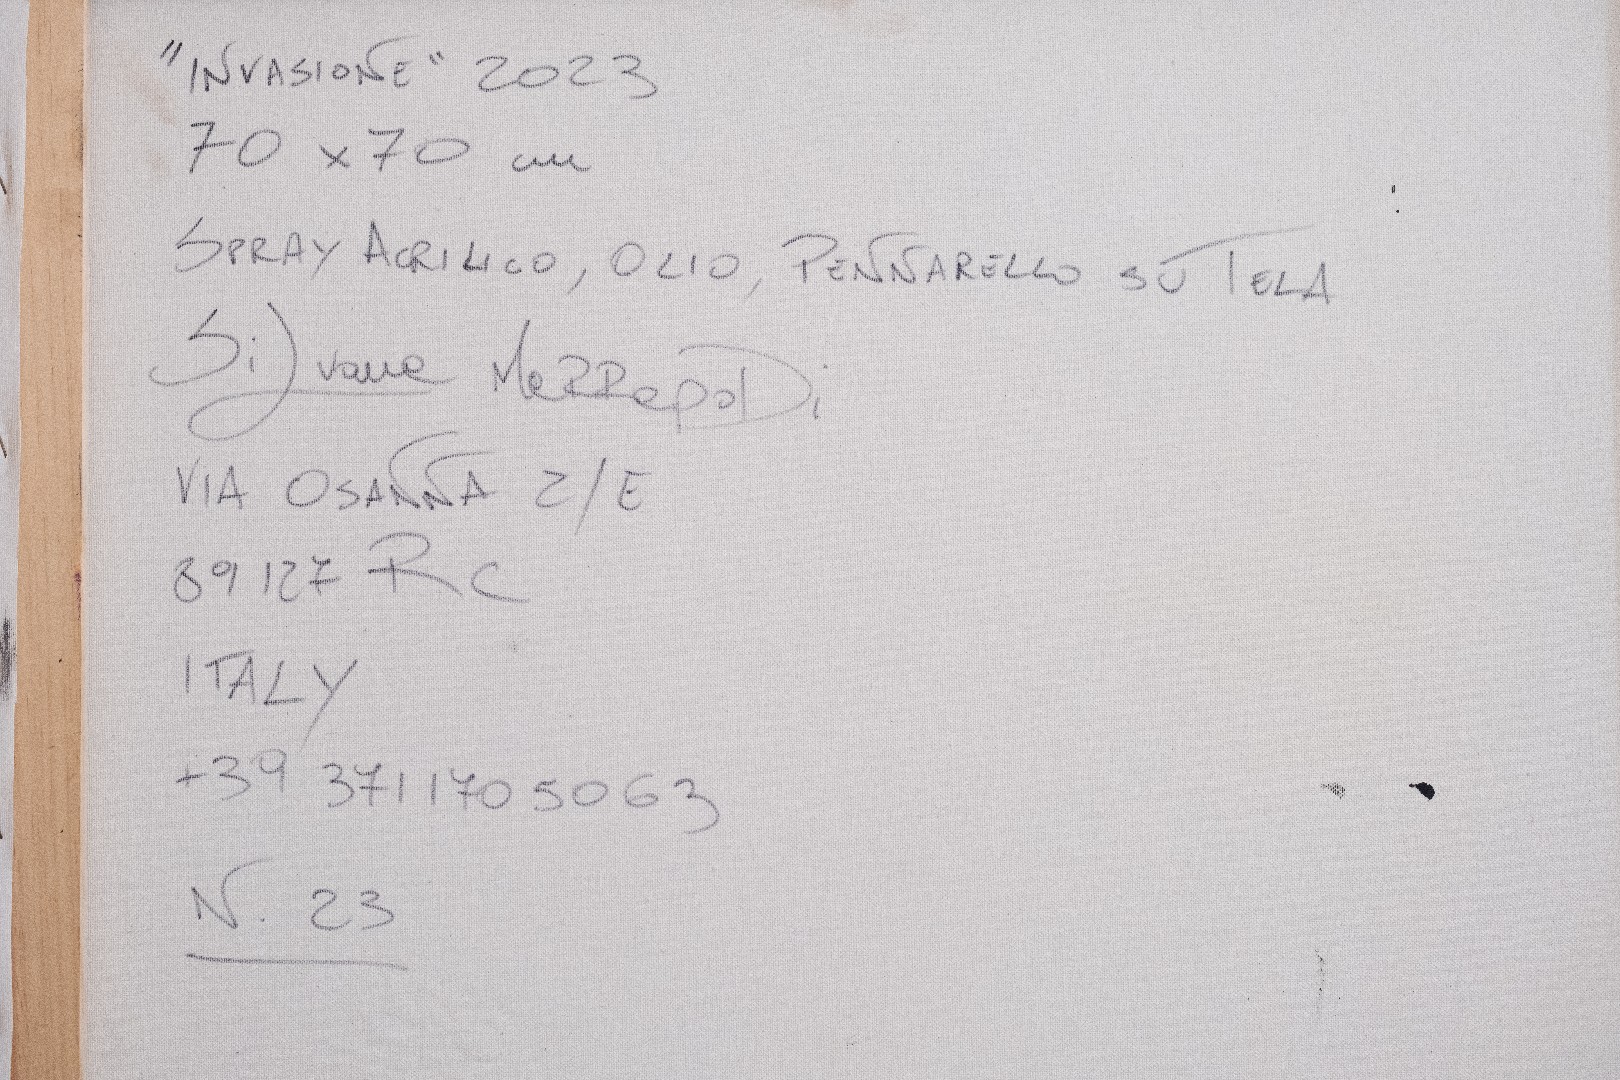 "INVASIONE" 2023
70 x 70 cm
SPRAY ACRILICO, OLIO, PENNARELLO SU TELA
Silvana
VIA OSANNA 2/E
89127 RC
ITALY
+39 3711705063
N. 23